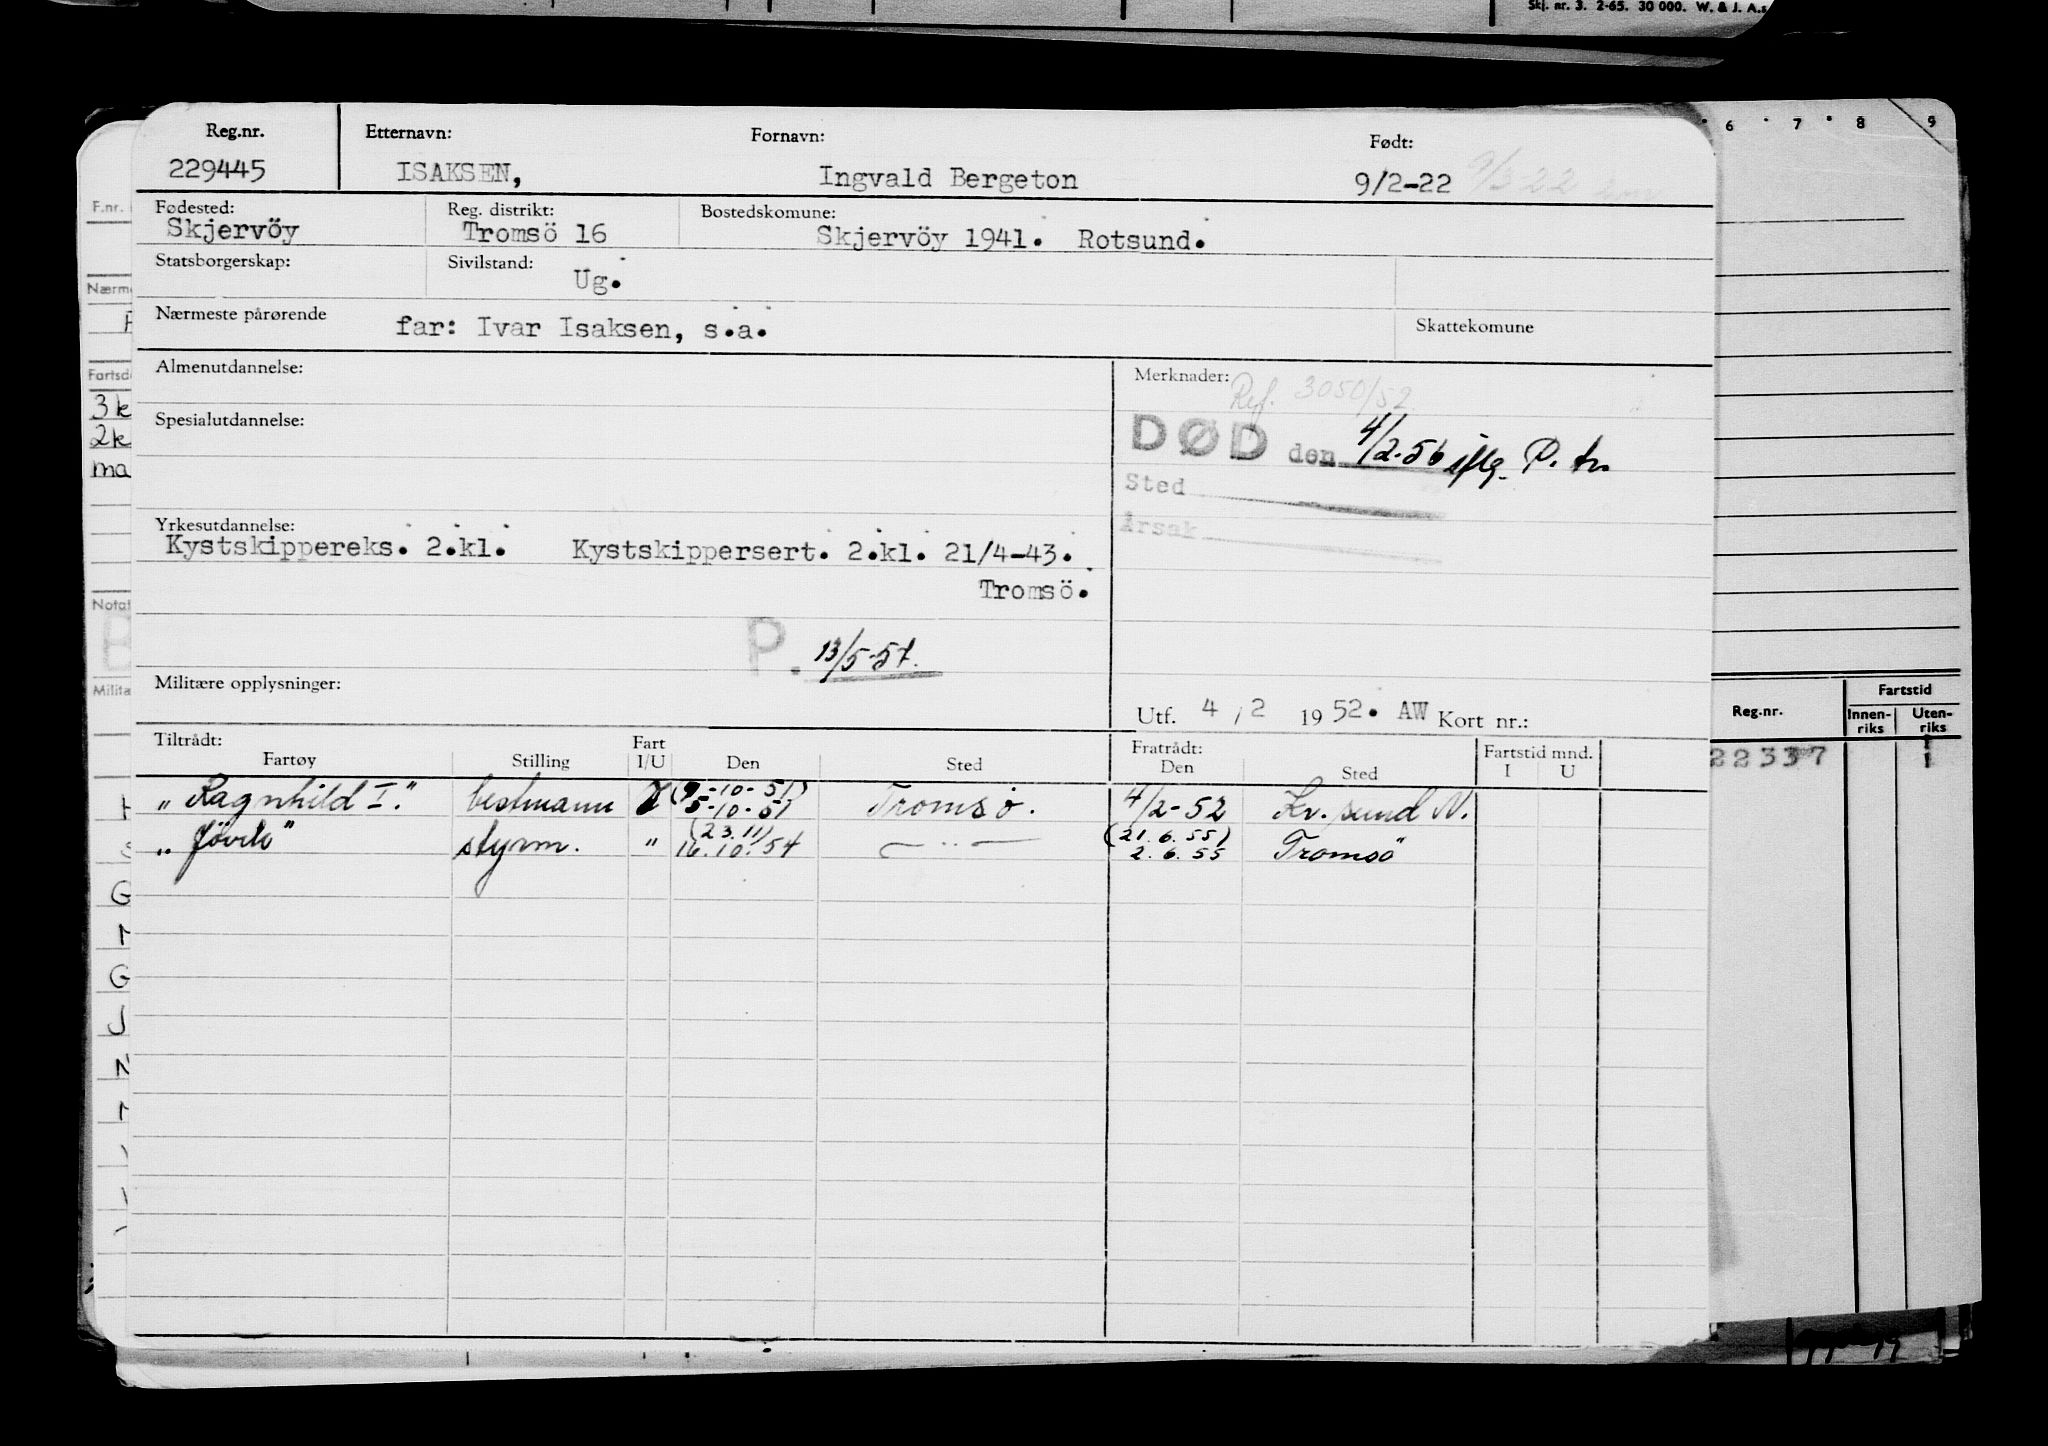 Skj. nr. 3. 2-65. 30 000. W. & J. A.s
6 7 8 9
Reg.nr. Etternavn: Fornavn: Født:
229445 ISAKSEN, Ingvald Bergeton 9/2-22 9/3-22
F.nr. Fødested: Reg. distrikt: Bostedskomune:
Skjervöy Tromsö 16 Skjervöy 1941. Rotsund.
Statsborgerskap: Sivilstand:
Ug.
Nærme Nærmeste pårørende Skattekomune
far: Ivar Isaksen, s.a.
Fartsd Almenutdannelse: Merknader:
Ref. 3050/52
3 k
2 k Spesialutdannelse: DØD den 4/2-56 iflg. P. tr.
ma
Sted
Årsak
Yrkesutdannelse:
Kystskippereks. 2.kl. Kystskippersert. 2.kl. 21/4-43.
Tromsö.
Notat
P. 13/5-57.
Milita Militære opplysninger:
Utf. 4/2 1952. AW Kort nr.:
Reg.nr. Fartstid
Innen-riks Uten-riks
22337 1
Tiltrådt: Fart Fratrådt: Fartstid mnd.
Fartøy Stilling I/U Den Sted Den Sted I U
"Ragnhild I." bestmann (9-10-51) Tromsø. 4/2-52 Kr.sund N.
5-10-51
"Jövik" styrm. " (23.11) — " — (21.6.55) Tromsö
16.10.54 2.6.55
G
G
J
N